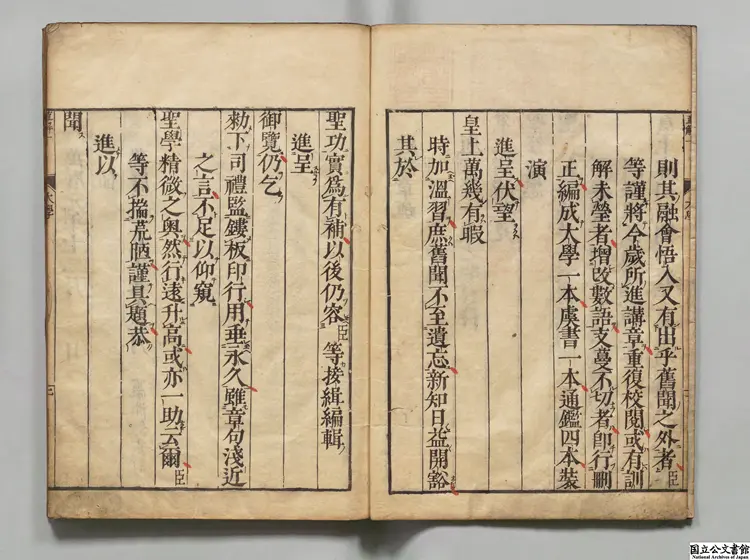 則其融會悟入又有出乎舊聞之外者臣
等謹將今歲所進講章重復校閱或有訓
解未瑩者增改數語支蔓不切者即行刪
正編成大學一本虞書一本通鑑四本裝
演
進呈伏望
皇上萬幾有暇
時加溫習庶舊聞不至遺忘新知日益開豁
其於
聖功實爲有補以後仍容臣等接緝編輯
進呈
御覽仍乞
勑下司禮監鏤板印行用垂永久雖章句淺近
之言不足以仰窺
聖學精微之奥然行遠升高或亦一助云爾臣
等不揣荒陋謹具題恭
進以
聞
大學
国立公文書館
National Archives of Japan